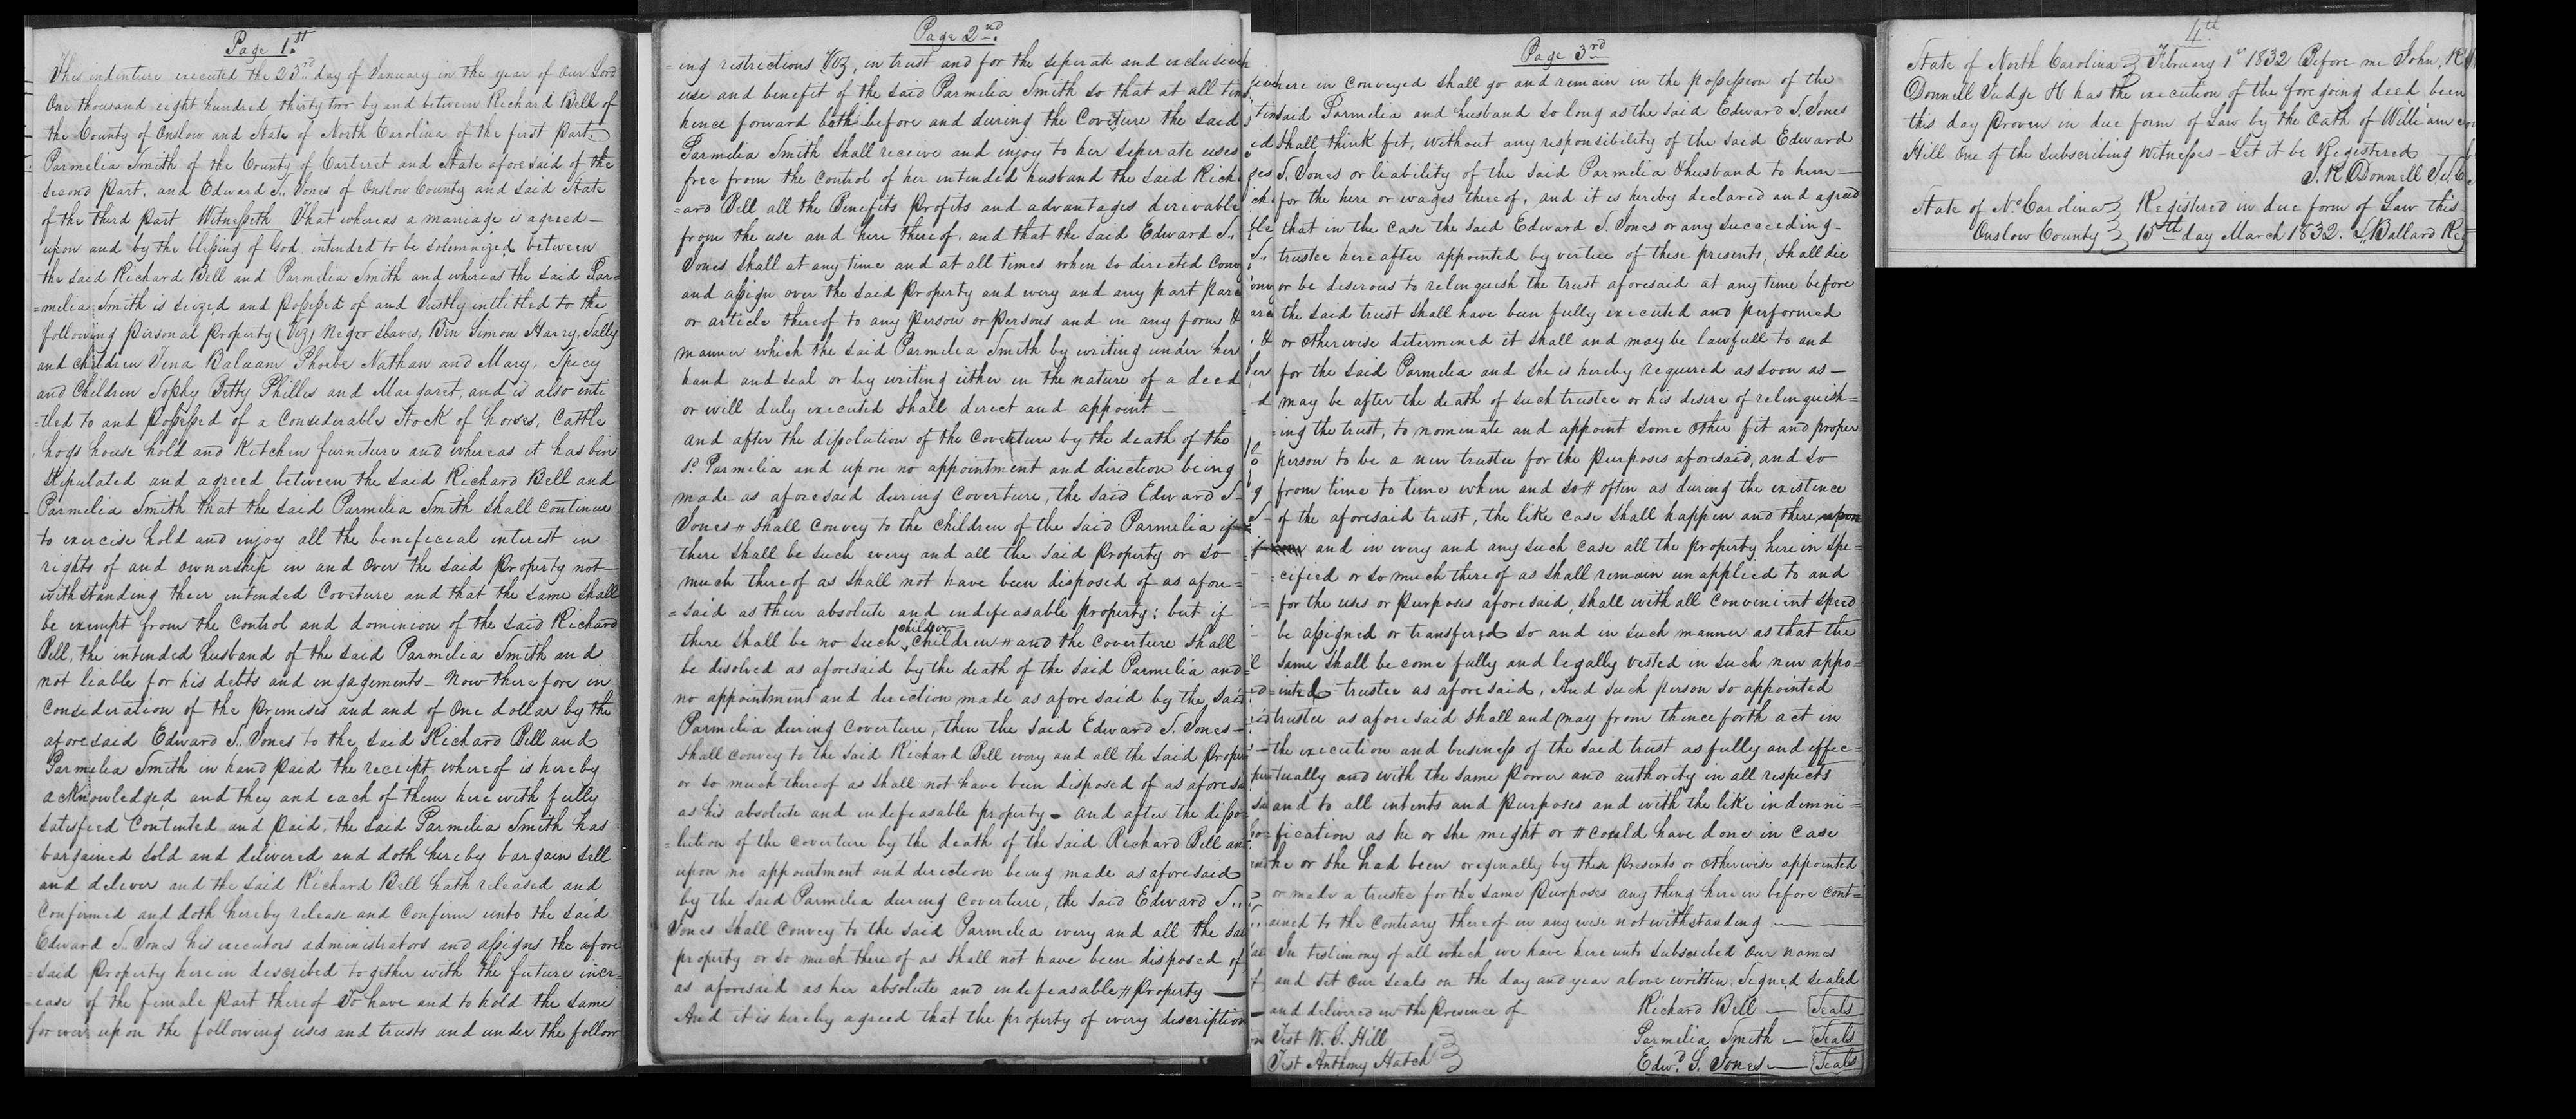 Page 1.st
This indenture executed the 23rd day of January in the year of our Lord
One thousand eight hundred thirty two by and between Richard Bell of
the County of Onslow and State of North Carolina of the first part.
Parmelia Smith of the County of Carteret and State aforesaid of the
second part, and Edward S. Jones of Onslow County and said State
of the third part Witnesseth That whereas a marriage is agreed —
upon and by the blessing of God. intended to be solemnized between
the said Richard Bell and Parmelia Smith and whereas the said Par=
=melia Smith is seized and possessed of and Justly intitled to the
following personal property (Viz) Negro slaves, Ben Simon Harry, Sally
and children Vena Balaam Phoebe Nathan and Mary, Spicy
and Children Sophy Betty Phillis and Margaret, and is also inti
=tled to and possessed of a Considerable Stock of horses, Cattle
hogs house hold and Kitchen furniture and whereas it has bin
Stipulated and agreed between the said Richard Bell and
Parmelia Smith that the said Parmelia Smith shall continue
to exercise hold and injoy all the beneficial interest in
rights of and ownership in and over the said property not—
withstanding their intended Coverture and that the same shall
be exempt from the Control and dominion of the said Richard
Bell, the intended husband of the said Parmelia Smith and
not liable for his debts and ingagements — Now therefore in
Consideration of the premises and and of One dollar by the
aforesaid Edward S. Jones to the said Richard Bell and
Parmelia Smith in hand paid the receipt whereof is hereby
acknowledged and they and each of them here with fully
satisfied Contented and paid, the said Parmelia Smith has
bargained sold and delivered and doth hereby bargain sell
and deliver and the said Richard Bell hath released and
Confirmed and doth hereby release and Confirm unto the said
Edward S. Jones his executors administrators and assigns the afore
=said property herein described together with the future incr=
=ease of the female part thereof To have and to hold the same
forever upon the following uses and trusts and under the follow
Page 2nd.
=ing restrictions Viz, in trust and for the seperate and exclusive
use and benefit of the said Parmelia Smith so that at all tim
hence forward both before and during the Coverture the said
Parmelia Smith shall receive and injoy to her seperate uses
free from the control of her intended husband the said Rich
=ard Bell all the Benefits profits and advantages derivable
from the use and here thereof, and that the said Edward S.,
Jones shall at any time and at all times when so directed Conv
and assign over the said property and every and any part parc
or article thereof to any person or persons and in any form &
manner which the said Parmelia Smith by writing under her
hand and seal or by writing either in the nature of a deed
or will duly executed shall direct and appoint —
and after the dissolution of the Coverture by the death of the
sd. Parmelia and upon no appointment and direction being
made as aforesaid during Coverture, the said Edward S—
Jones shall convey to the children of the said Parmelia if
there shall be such every and all the said property or so
much thereof as shall not have been disposed of as afore=
=said as their absolute and indefeasable property; but if
there shall be no such children children and the coverture shall
be disolved as aforesaid by the death of the said Parmelia and
no appointment and direction made as aforesaid by the said
Parmelia during coverture, then the said Edward S. Jones —
shall convey to the said Richard Bell every and all the said proper
or so much thereof as shall not have been disposed of as aforesa
as his absolute and indefeasable property — and after the disso
=lution of the coverture by the death of the said Richard Bell an
upon no appointment and direction being made as aforesaid
by the said Parmelia during coverture, the said Edward S.,
Jones shall Convey to the said Parmelia every and all the sai
property or so much there of as shall not have been disposed of
as aforesaid as her absolute and indefeasable property —
And it is hereby agreed that the property of every discription
Page 3rd
here in conveyed shall go and remain in the possession of the
said Parmelia and husband so long as the said Edward S. Jones
shall think fit, without any responsibility of the said Edward
S. Jones or liability of the said Parmelia & husband to him —
for the here or wages thereof, and it is hereby declared and agreed
that in the case the said Edward S. Jones or any succeeding —
trustee here after appointed by vertue of these presents, shall die
or be desirous to relinquish the trust aforesaid at any time before
the said trust shall have been fully executed and performed
or otherwise determined it shall and may be lawfull to and
for the said Parmelia and she is hereby required as soon as —
may be after the death of such trustee or his desire of relinquish=
=ing the trust, to nominate and appoint some other fit and proper
person to be a new trustee for the purposes aforesaid, and so
from time to time when and so often as during the existence
of the aforesaid trust, the like case shall happen and there upon
and in every and any such case all the property herein spe=
=cified or so much thereof as shall remain unapplied to and
for the uses or purposes aforesaid, shall with all convenient speed
be assigned or transfered so and in such manner as that the
same shall be come fully and legally vested in such new appo=
=inted trustee as aforesaid, And such person so appointed
trustee as aforesaid shall and may from thence forth act in
the execution and business of the said trust as fully and effec=
tually and with the same Power and authority in all respects
and to all intents and purposes and with the like indemni=
fication as he or she might or could have done in case
he or she had been originally by these presents or otherwise appointed
or made a trustee for the same purposes any thing here in before cont=
ained to the contrary thereof in any wise not withstanding —
In testimony of all which we have here unto subscribed our names
and set our seals on the day and year above written. Signed sealed
and delivered in the presence of Richard Bell — Seals
Test W. J. Hill Parmelia Smith — Seals
Test Anthony Hatch Edwd. S. Jones — Seals
4th
State of North Carolina } February 1st 1832 Before me John, R
Donnell Judge & has the execution of the foregoing deed been
this day proven in due form of Law by the Oath of William
Hill one of the subscribing witnesses — Let it be Registered
J. R. Donnell J. S. C
State of No. Carolina } Registered in due form of Law this
Onslow County } 15th day March 1832. Ballard Reg